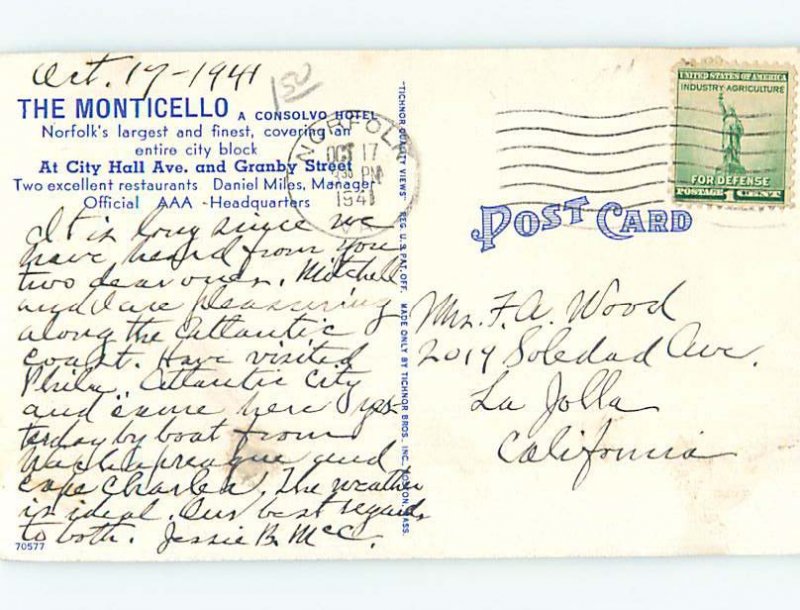 Oct. 17-1941
150
THE MONTICELLO A CONSOLVO HOTEL
Norfolk's largest and finest, covering an
entire city block
At City Hall Ave. and Granby Street
Two excellent restaurants Daniel Miles, Manager
Official AAA -Headquarters
It is long since we
have heard from you
two dear ones. Mitchell
and I are pleasuring
along the Atlantic
coast. Have visited
Phila, Atlantic City
and came here yes-
terday by boat from
Wachapreague and
Cape Charles. The weather
is ideal. Our best regards
to both. Jessie B. McC.
70577
"TICHNOR QUALITY VIEWS" REG. U. S. PAT. OFF. MADE ONLY BY TICHNOR BROS. INC., BOSTON, MASS.
NORFOLK
OCT 17
PM
1941
VA
UNITED STATES OF AMERICA
INDUSTRY-AGRICULTURE
FOR DEFENSE
POSTAGE 1 CENT
POST CARD
Mrs. F. A. Wood
2019 Soledad Ave.
La Jolla
California